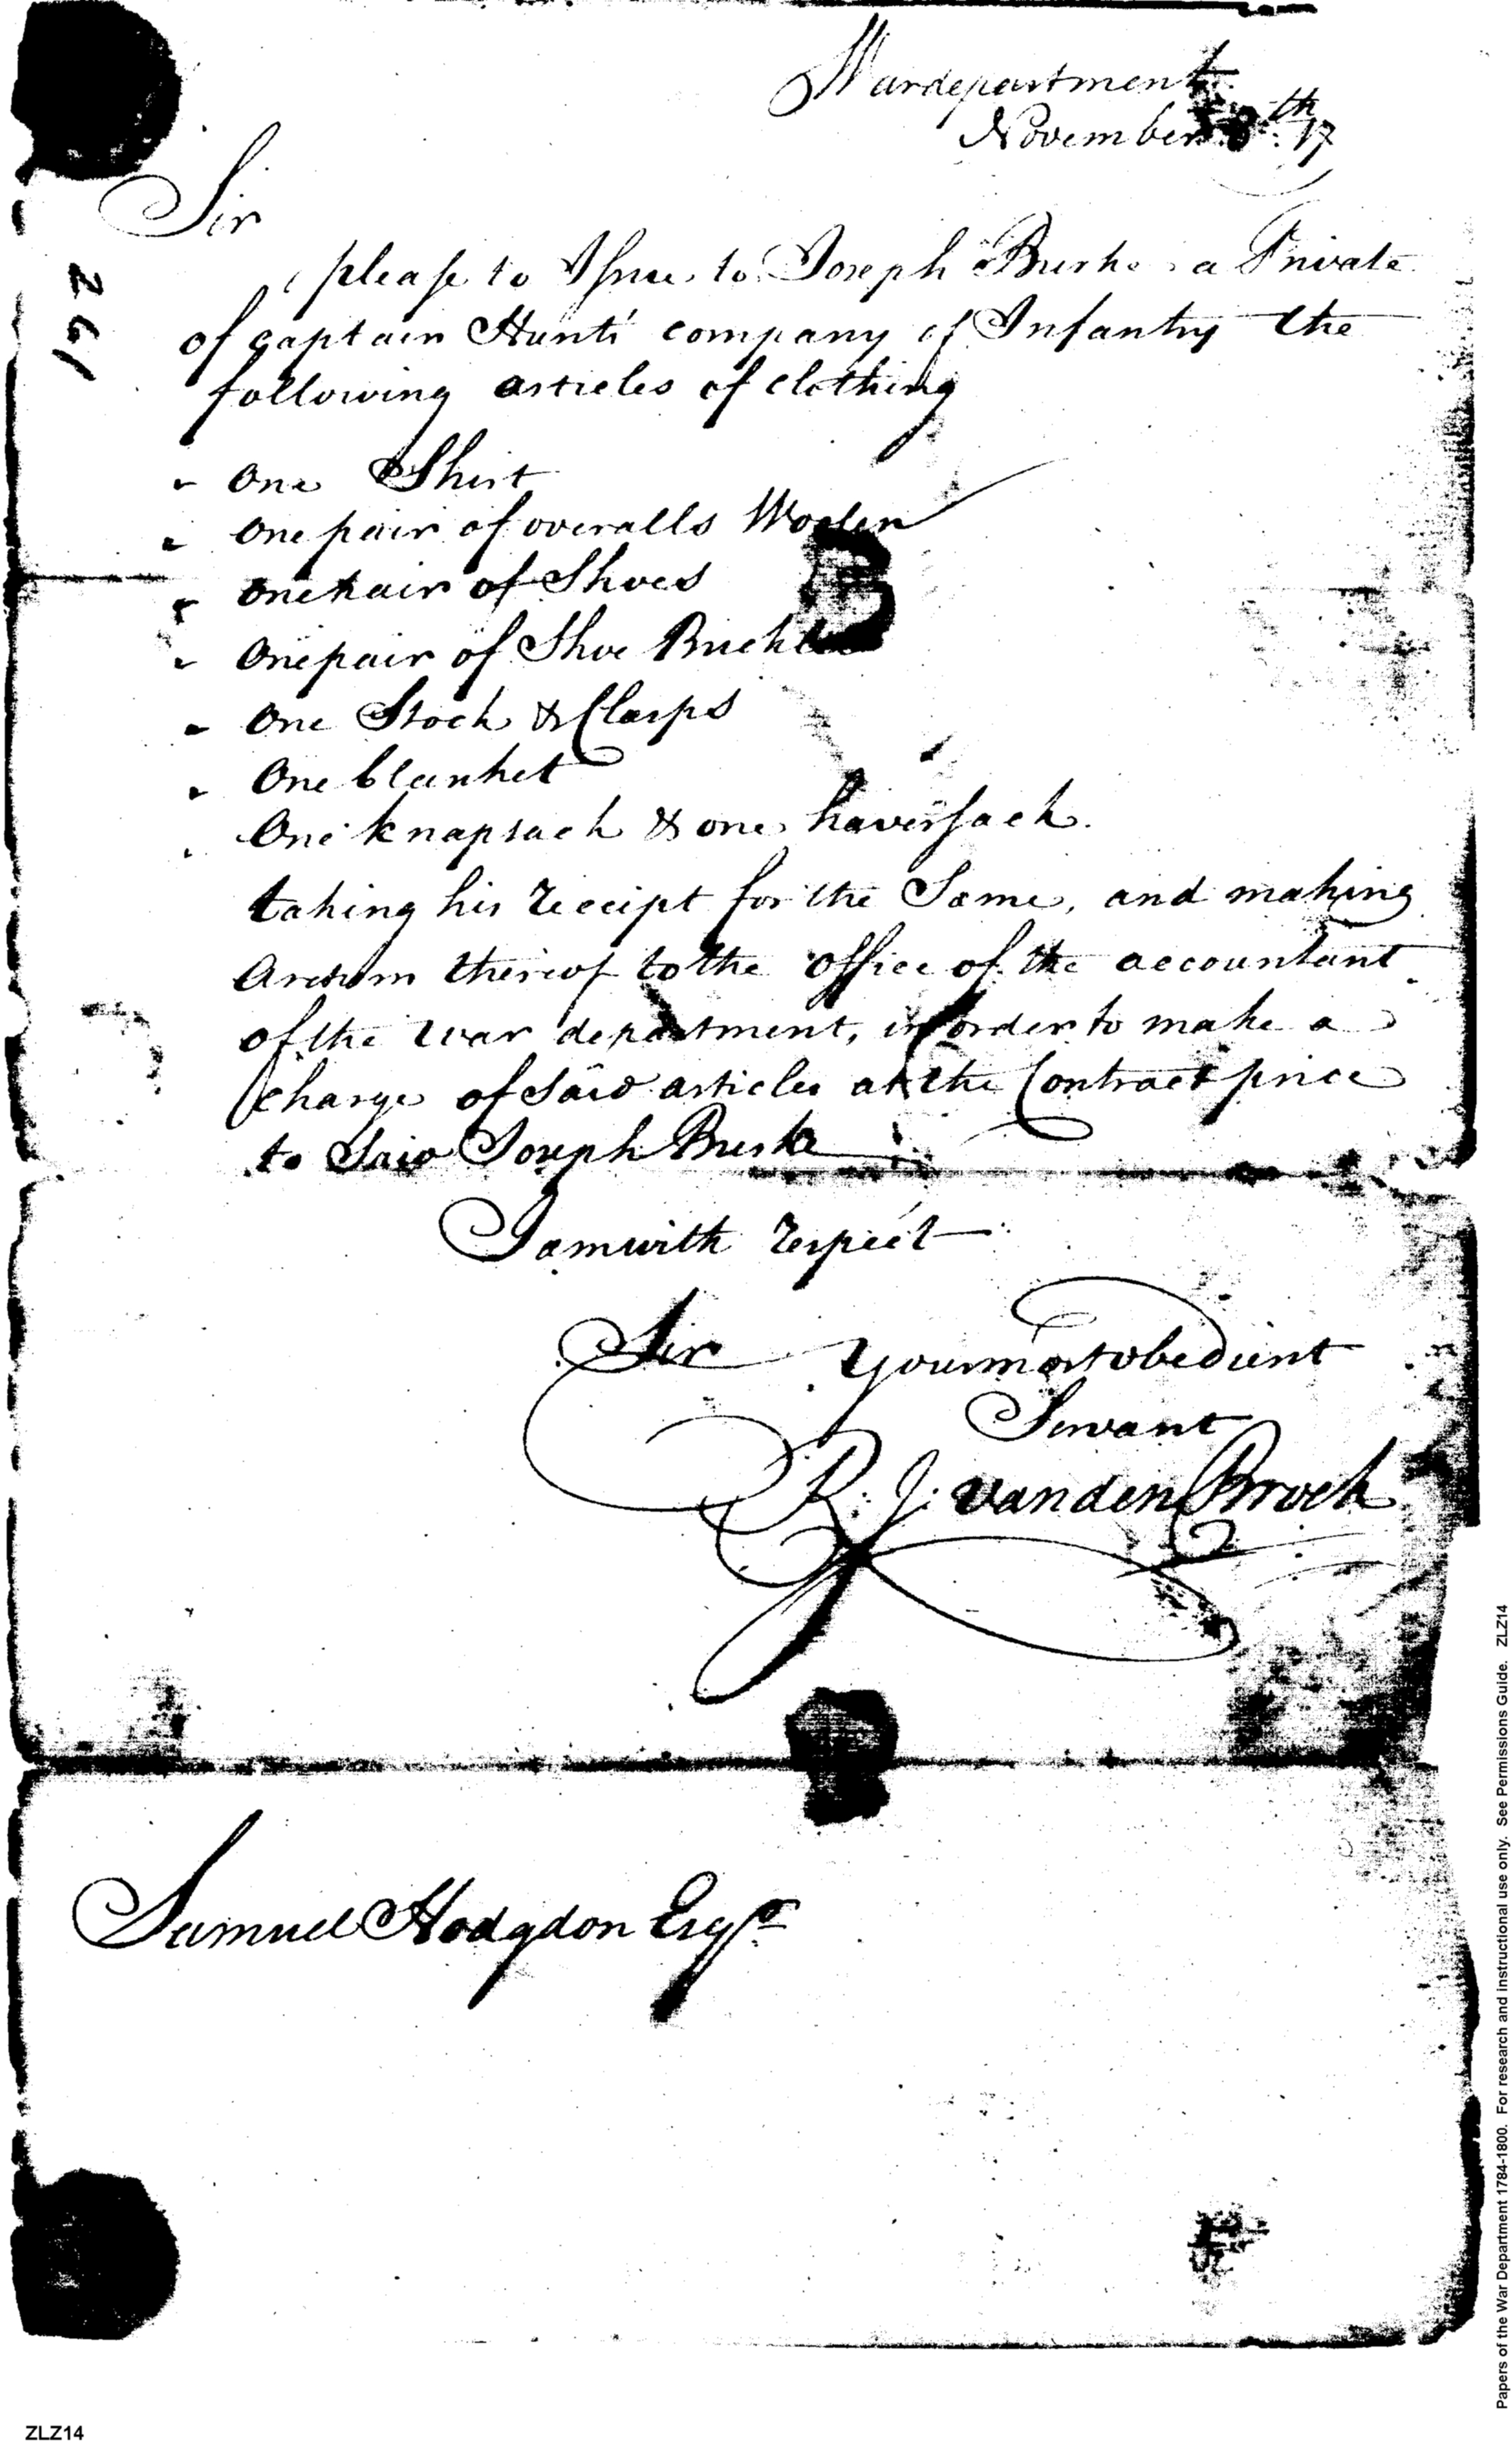 Wardepartment
November 8th: 17
Sir
please to Issue to Joseph Burke a Private
of Captain Hunts' company of Infantry the
following articles of clothing
One Shirt
One pair of overalls Woolen
One pair of Shoes
One pair of Shoe Buckles
One Stock & Clasps
One blanket
One knapsack & one haversack.
taking his receipt for the Same, and making
Areturn thereof to the office of the accountant
of the war department, in order to make a
Charge of Said articles at the Contract price
to Said Joseph Burke
I am with respect
Sir your most obedient
Servant
R. J. vanden Broek
Samuel Hodgdon Esqr
261
Papers of the War Department 1784-1800. For research and instructional use only. See Permissions Guide. ZLZ14
ZLZ14